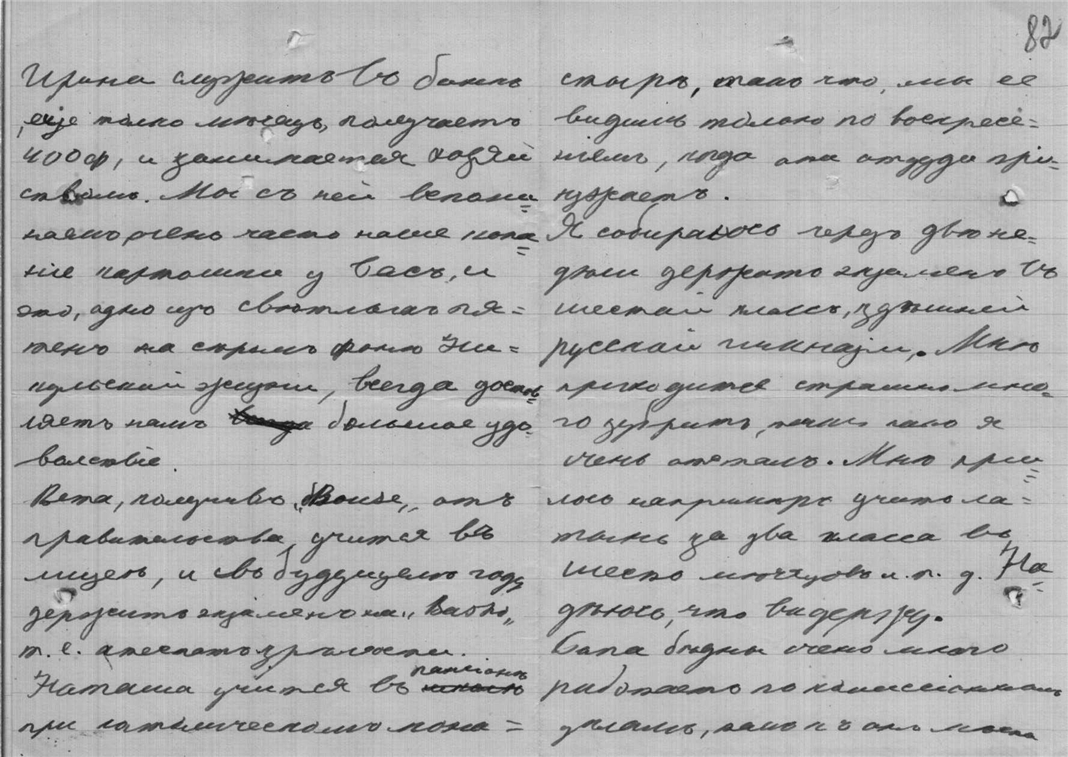 82
Ирина служитъ въ банкѣ
, еще только мѣсяцъ, получаетъ
400 ф, и занимается хозяй
ствомъ. Мы съ ней вспоми=
наемъ очень часто наше копа=
ніе картошки у Васъ, и
это, одно изъ свѣтлыхъ пя=
тенъ на сѣромъ фонѣ
жизни, всегда достав=
ляетъ намъ большое удо=
волствіе.
Вета, получивъ „Bourse„ отъ
правительства, учится въ
лицеѣ, и въ будущемъ году
держитъ экзаменъ на „Bacho„
т. е. атестатъ зрѣлости.
Наташа учится въ пансіонѣ
при католическомъ мона=
стырѣ, такъ что, мы её
видимъ только по воскресе=
ніямъ, когда она оттуда прі=
ѣзжаетъ.
Я собираюсь черезъ двѣ не=
дѣли держать экзаменъ въ
шестой классъ, здѣшней
русской гимназіи. Мнѣ
приходится страшно мно=
го зубрить, такъ какъ я
очень отсталъ. Мнѣ приш=
лось напримѣръ учить ла=
тынь за два класса въ
шесть мѣсяцовъ и. т. д. На=
дѣюсь, что выдержу.
Папа бѣдный очень много
работаетъ по комиссіоннымъ
дѣламъ, такъ что онъ